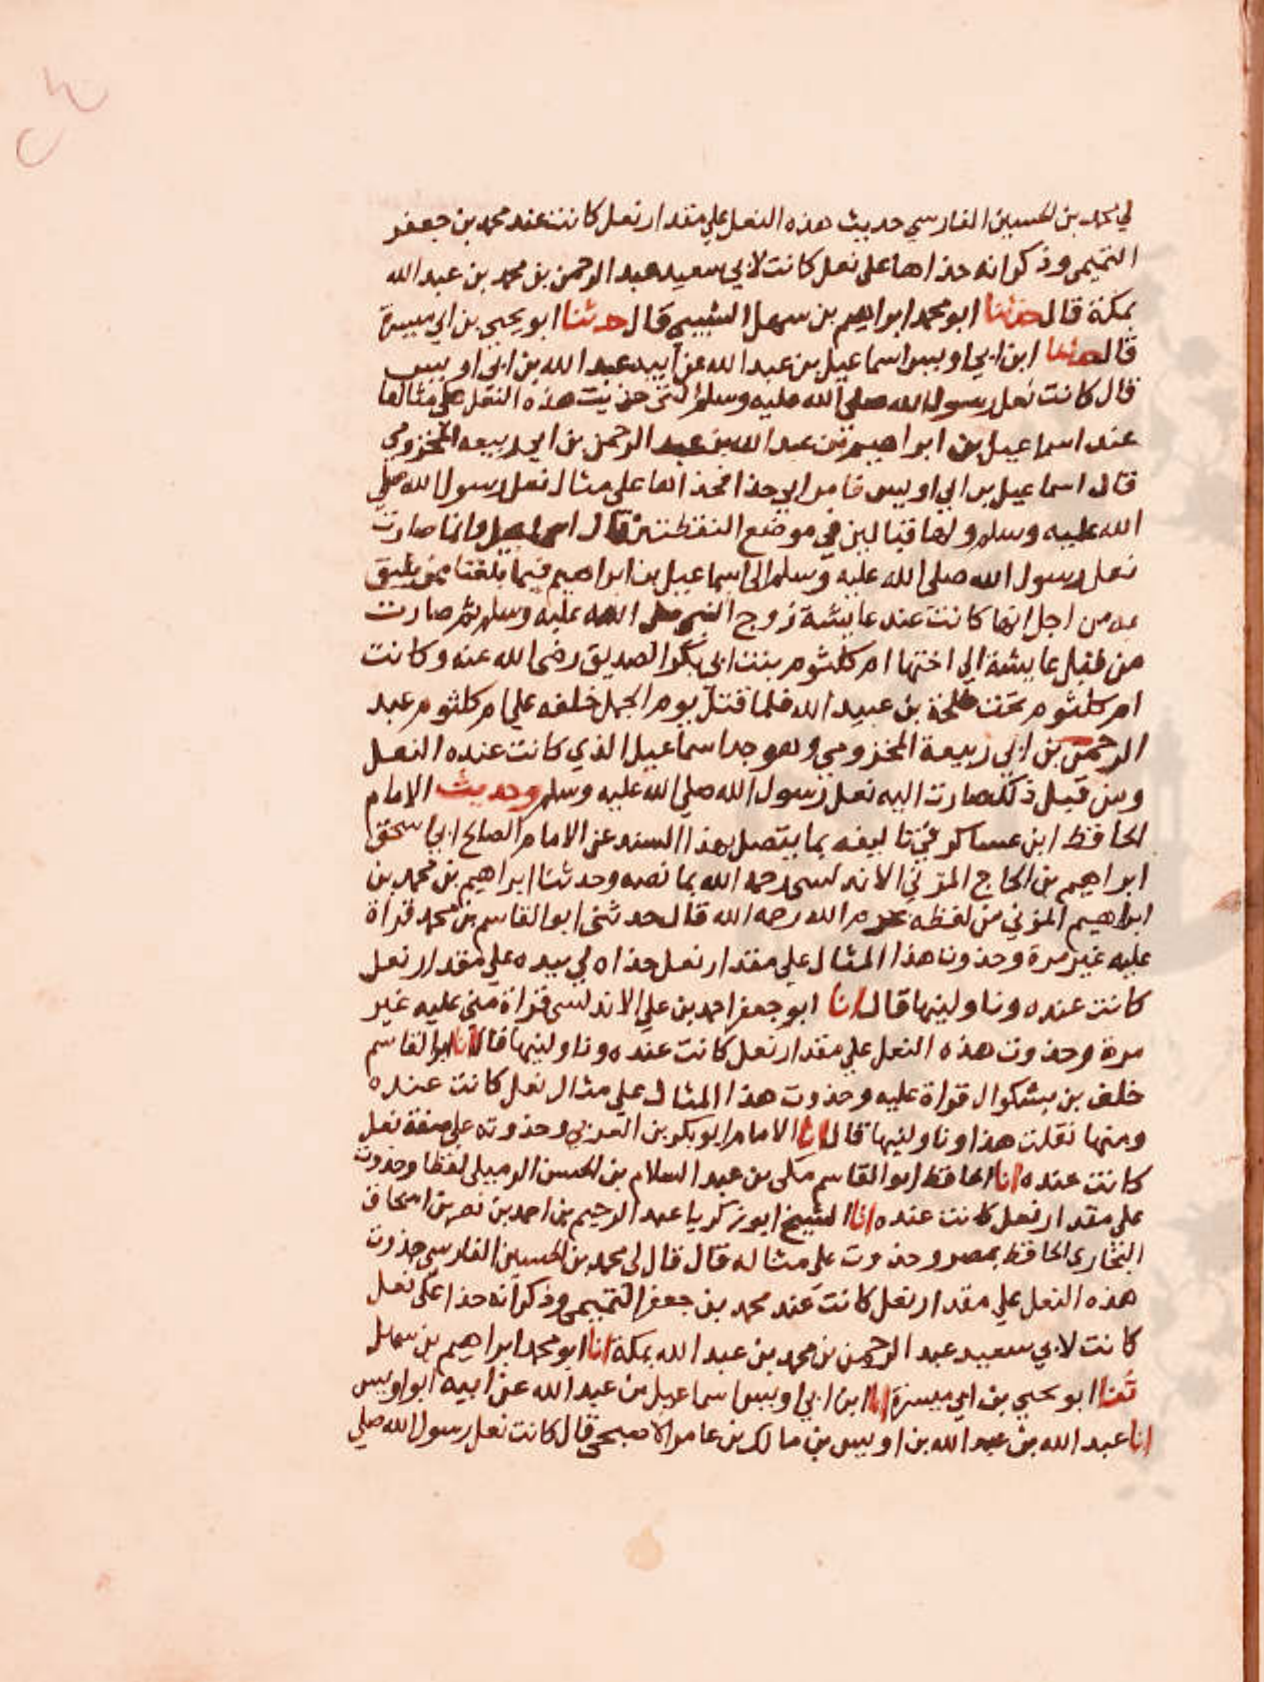 لي محمد بن الحسين الفارسي حذيت هذه النعل علي مقدار نعل كانت عند محمد بن جعفر
التميمي وذكر انه حذاها على نعل كانت لابي سعيد عبد الرحمن بن محمد بن عبد الله
بمكة قال حدثنا ابو محمد ابراهيم بن سهل الشيبي قال حدثنا ابو يحيي بن ابي ميسرة
قال حدثنا ابن ابي اويس اسماعيل بن عبد الله عن ابيه عبد الله بن ابي اويس
قال كانت نعل رسول الله صلي الله عليه وسلم التى حذيت هذه النعل على مثالها
عند اسماعيل بن ابراهيم بن عبد الله بن عبد الرحمن بن ابي ربيعه المخزومي
قال اسماعيل بن ابي اويس فامر ابي حذا فحذا لها على مثال نعل رسول الله صلي
الله عليه وسلم ولها قبالين في موضع النقطتين قال اسماعيل وانما صارت
نعل رسول الله صلى الله عليه وسلم الى اسماعيل بن ابراهيم فيما بلغنا ممن يثق
به من اجل انها كانت عند عايشة زوج النبي صلى الله عليه وسلم ثم صارت
من قبل عايشة الي اختها ام كلثوم بنت ابي بكر الصديق رضى الله عنه وكانت
ام كلثوم تحت طلحة بن عبيد الله فلما قتل يوم الجمل خلفه علي ام كلثوم عبد
الرحمن بن ابي ربيعة المخزومي وهو جد اسماعيل الذي كانت عنده النعل
ومن قبل ذلك صارت اليه نعل رسول الله صلي الله عليه وسلم وحديث الامام
الحافظ ابن عساكر في تاليفه بما يتصل بهذا السند عن الامام الصالح ابي اسحق
ابراهيم بن الحاج المرني الاندلسى رحمه الله بما نصه وحدثنا ابراهيم بن محمد بن
ابراهيم المرني من لفظه رحمه الله قال حدثنى ابو القاسم بن محمد قراة
عليه غير مرة وحذونا هذا المثال علي مقدار نعل حذاه لي بيده علي مقدار نعل
كانت عنده وناولنيها قال انا ابو جعفر احمد بن علي الاندلسى قراة منى عليه غير
مرة وحذوت هذه النعل علي مقدار نعل كانت عنده وناولنيها قال انا ابو القاسم
خلف بن بشكوال قراة عليه وحذوت هذا المثال علي مثال نعل كانت عنده
ومنها نقلت هذا وناولنيها قال انا الامام ابو بكر بن العربي وحذوته علي صفة نعل
كانت عنده انا الحافظ ابو القاسم مكى بن عبد السلام بن الحسن الرميلي لفظا وحذوت
علي مقدار نعل كانت عنده انا الشيخ ابو زكريا عبد الرحيم بن احمد بن نصر بن اسحاق
البخاري الحافظ بمصر وحذوت علي مثاله قال قال لي محمد بن الحسين الفارسي حذوت
هذه النعل علي مقدار نعل كانت عند محمد بن جعفر التميمي وذكر انه حذا على نعل
كانت لابي سعيد عبد الرحمن بن محمد بن عبد الله بمكة انا ابو محمد ابراهيم بن سهل
ثنا ابو يحيي بن ابي ميسرة انا ابن ابي اويس اسماعيل بن عبد الله عن ابيه ابو اويس
انا عبد الله بن عبد الله بن اويس بن مالك بن عامر الاصبحى قال كانت نعل رسول الله صلي